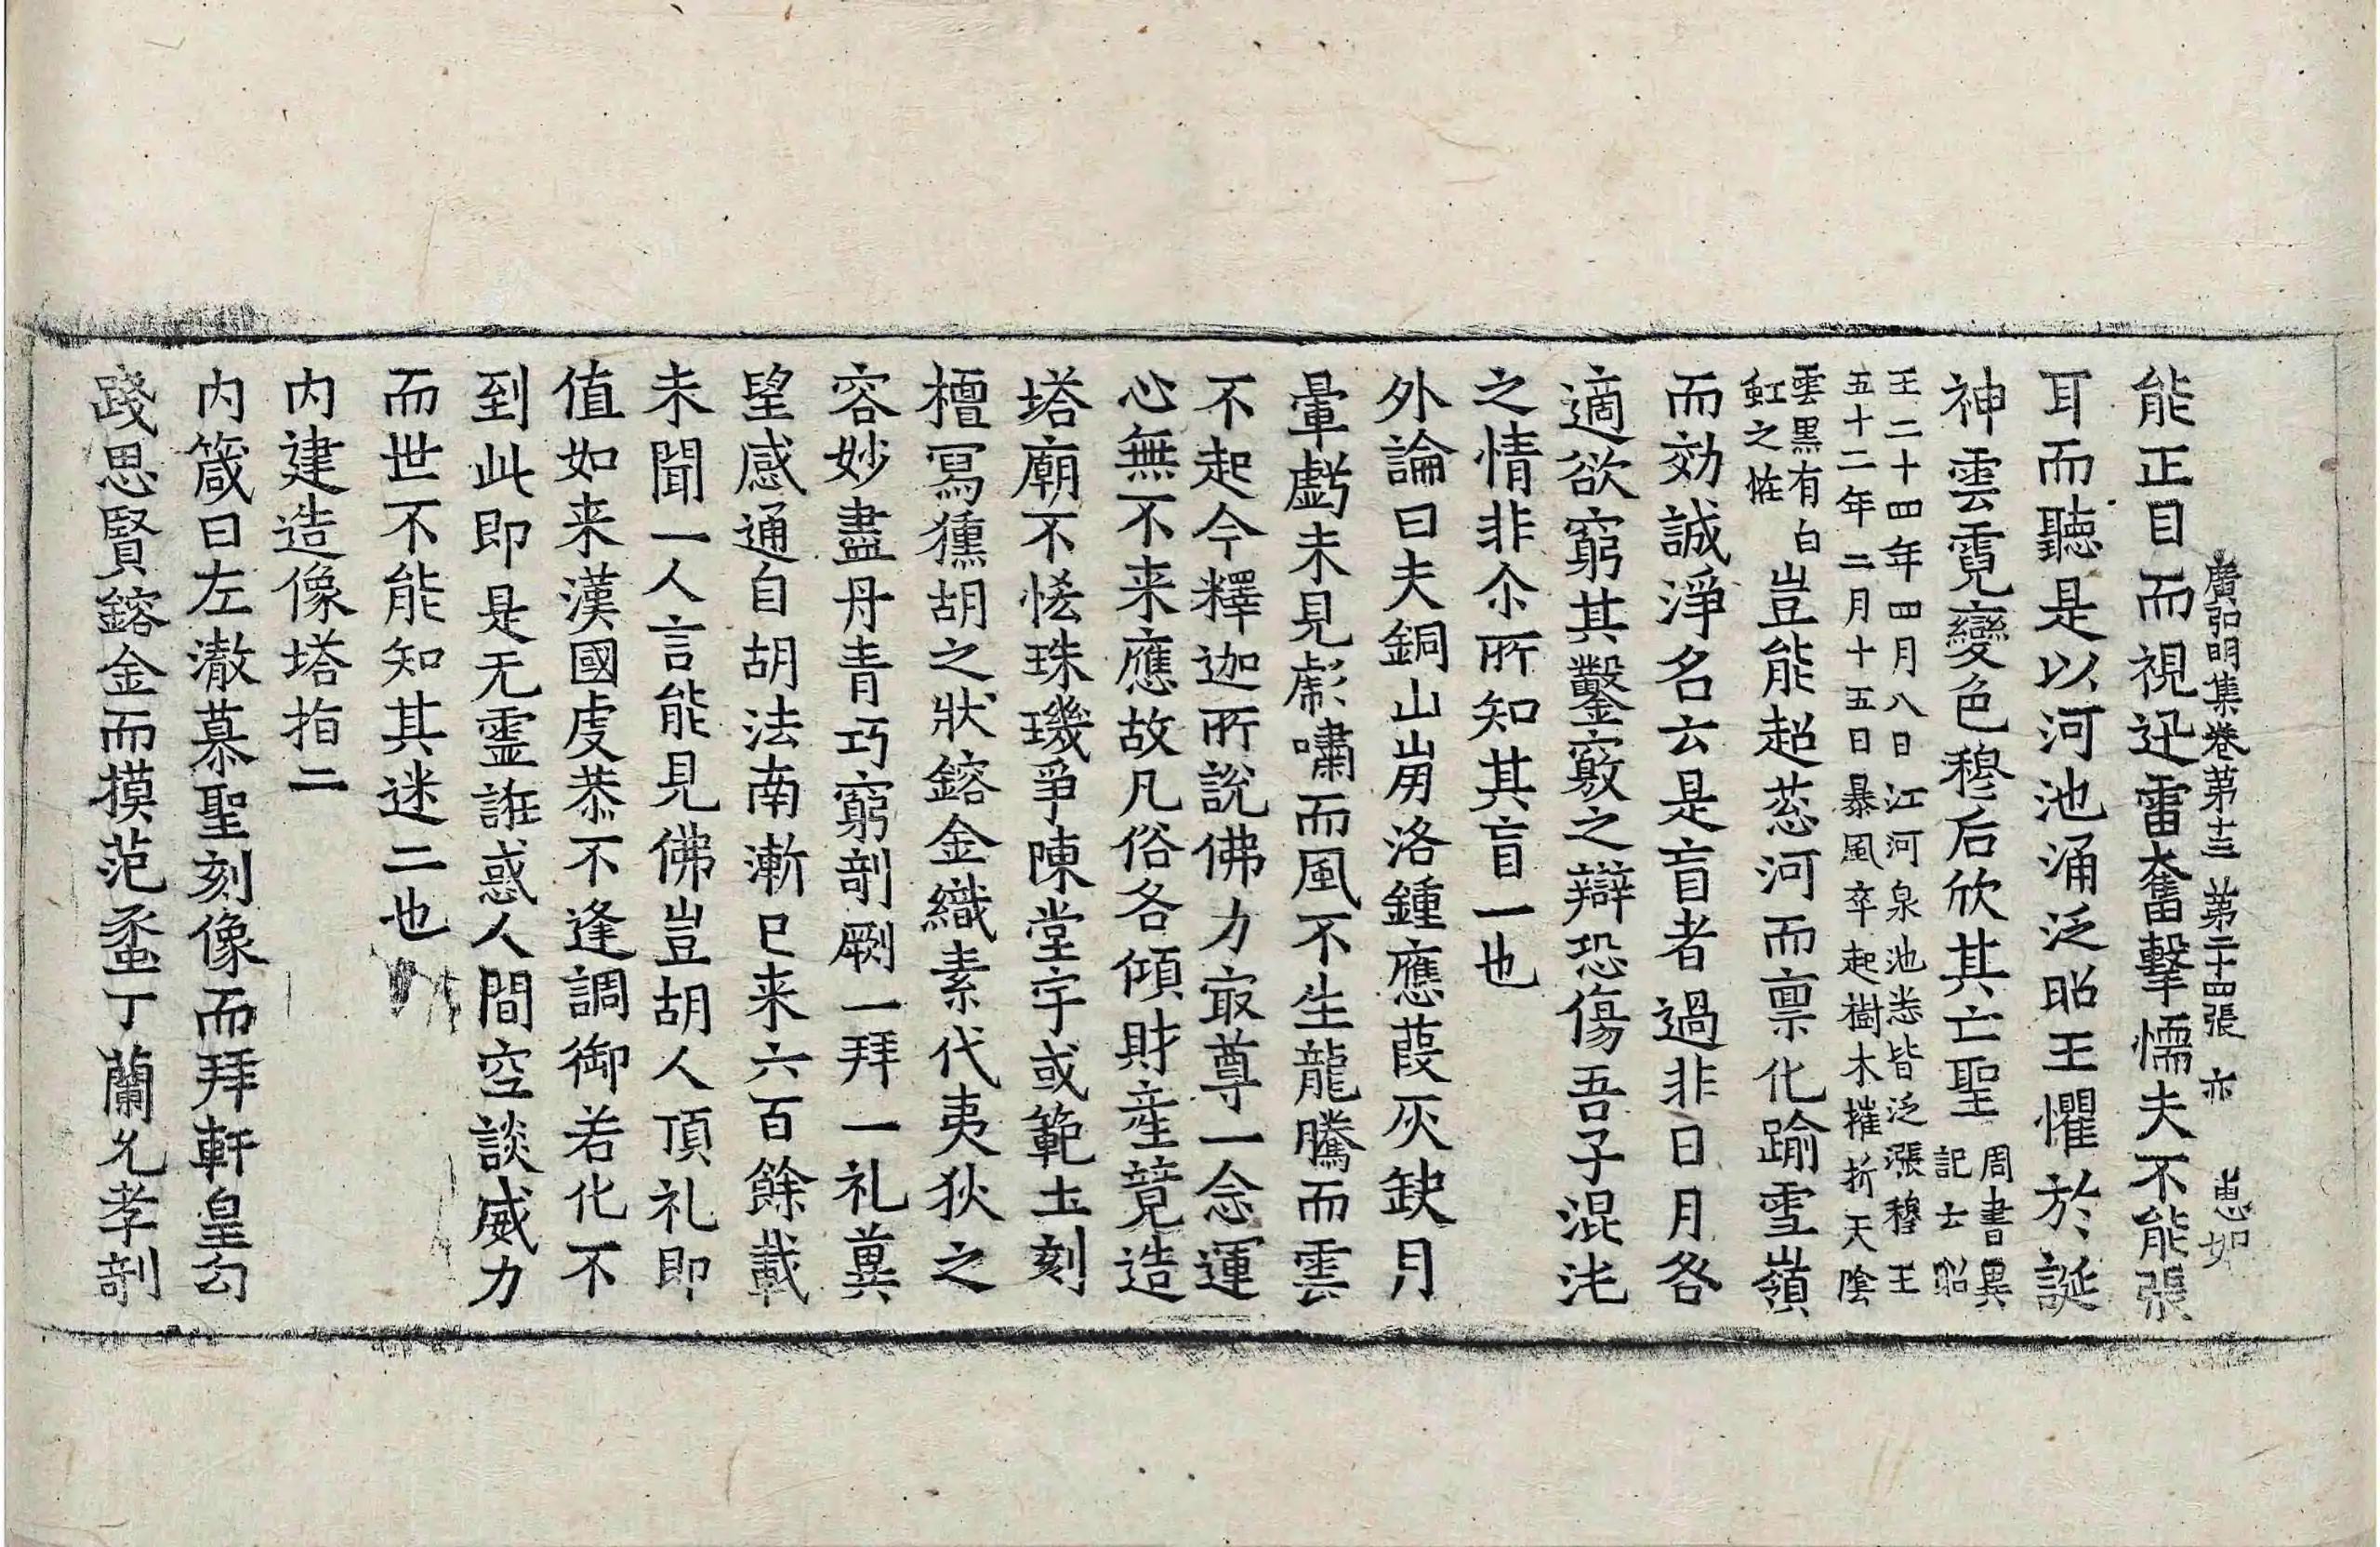 廣弘明集卷第十三 第二十四張 亦 惠如
能正目而視迅雷奮擊懦夫不能張
耳而聽是以河池涌泛昭王懼於誕
神雲霓變色穆后欣其亡聖周書異
記士昭
王二十四年四月八日江河泉池悉皆泛漲穆王
五十二年二月十五日暴風卒起樹木摧折天陰
雲黑有白
虹之恠豈能超葱河而禀化踰雪嶺
而効誠淨名云是盲者過非日月咎
適欲窮其鑿竅之辯恐傷吾子混沌
之情非尒所知其盲一也
外論曰夫銅山崩洛鍾應葭灰缺月
暈虧未見虎嘯而風不生龍騰而雲
不起今釋迦所說佛力㝡尊一念運
心無不来應故凡俗各傾財産競造
塔廟不悋珠璣爭陳堂宇或範土刻
檀冩獯胡之狀鎔金織素代夷狄之
容妙盡丹青巧窮剞劂一拜一礼冀
望感通自胡法南漸已来六百餘載
未聞一人言能見佛豈胡人頂礼即
值如来漢國虔恭不逢調御若化不
到此即是无靈誑惑人間空談威力
而世不能知其迷二也
内建造像塔指二
内箴曰左澈慕聖刻像而拜軒皇勾
踐思賢鎔金而摸范蠡丁蘭允孝剖